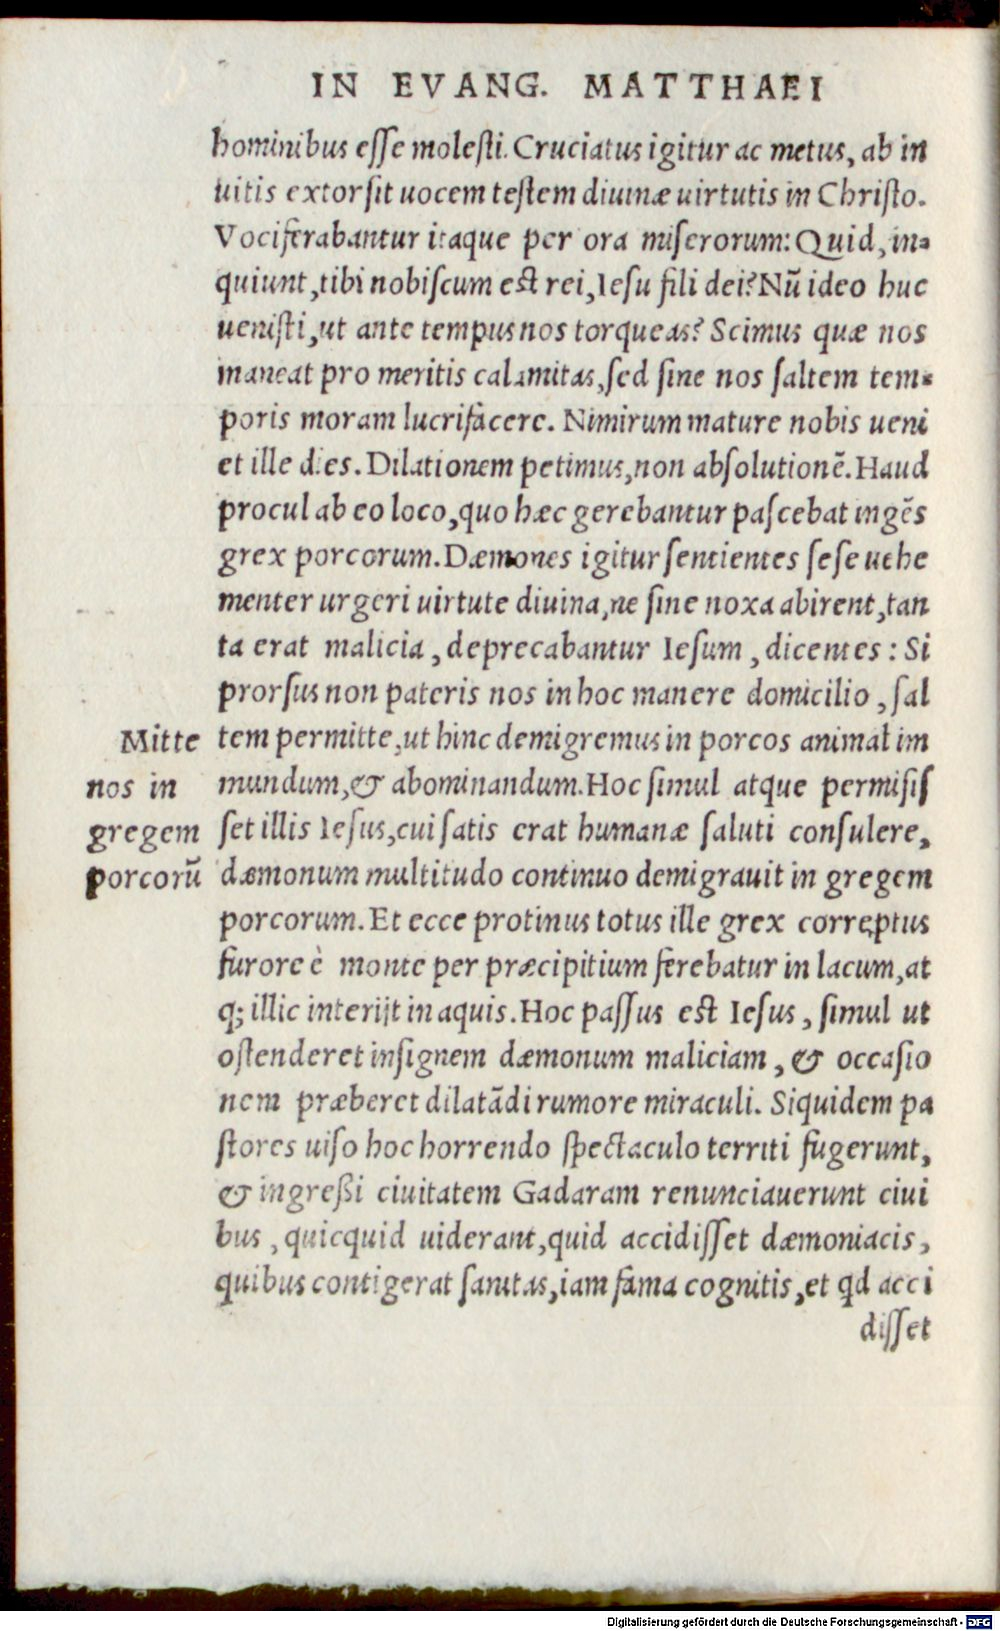 IN EVANG. MATTHAEI
hominibus esse molesti. Cruciatus igitur ac metus, ab in
uitis extorsit uocem testem diuinæ uirtutis in Christo.
Vociferabantur itaque per ora miserorum: Quid, in-
quiunt, tibi nobiscum est rei, Iesu fili dei? Nũ ideo huc
uenisti, ut ante tempus nos torqueas? Scimus quæ nos
maneat pro meritis calamitas, sed sine nos saltem tem-
poris moram lucrifacere. Nimirum mature nobis ueni
et ille dies. Dilationem petimus, non absolutionẽ. Haud
procul ab eo loco, quo hæc gerebantur pascebat ingẽs
grex porcorum. Dæmones igitur sentientes sese uehe
menter urgeri uirtute diuina, ne sine noxa abirent, tan
ta erat malicia, deprecabantur Iesum, dicentes: Si
prorsus non pateris nos in hoc manere domicilio, sal
tem permitte, ut hinc demigremus in porcos animal im
mundum, & abominandum. Hoc simul atque permisis
set illis Iesus, cui satis erat humanæ saluti consulere,
dæmonum multitudo continuo demigrauit in gregem
porcorum. Et ecce protinus totus ille grex correptus
furore è monte per præcipitium ferebatur in lacum, at
q; illic interijt in aquis. Hoc passus est Iesus, simul ut
ostenderet insignem dæmonum maliciam, & occasio
nem præberet dilatãdi rumore miraculi. Siquidem pa
stores uiso hoc horrendo spectaculo territi fugerunt,
& ingreßi ciuitatem Gadaram renunciauerunt ciui
bus, quicquid uiderant, quid accidisset dæmoniacis,
quibus contigerat sanitas, iam fama cognitis, et qd acci
disset
Mitte
nos in
gregem
porcorũ
Digitalisierung gefördert durch die Deutsche Forschungsgemeinschaft - DFG